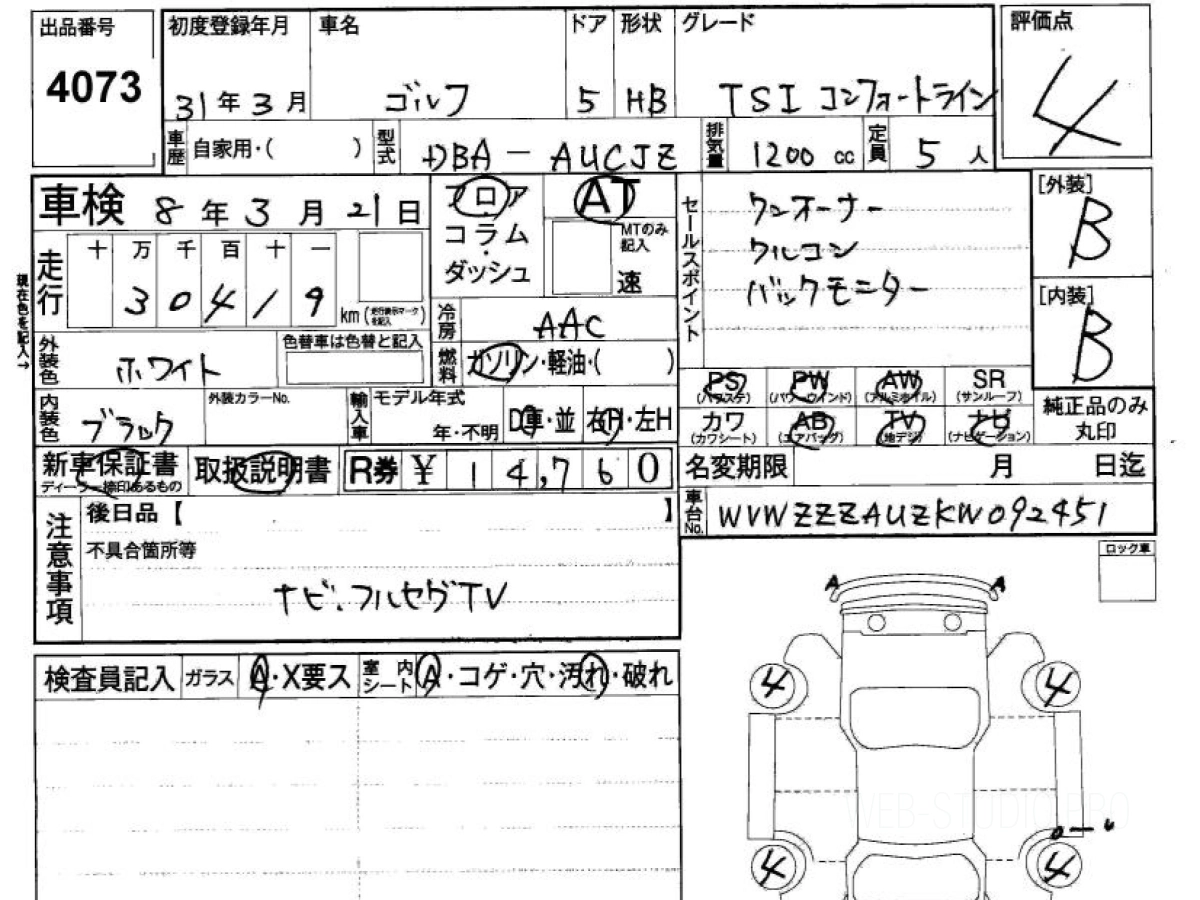 出品番号
4073
初度登録年月
31年3月
車名
ゴルフ
ドア
5
形状
HB
グレード
TSI コンフォートライン
評価点
4
車歴
自家用・(　　)
型式
DBA - AUCJZ
排気量
1200 cc
定員
5 人
車検 8年3月21日
フロア
コラム
ダッシュ
AT
MTのみ記入
速
セールスポイント
ワンオーナー
クルコン
バックモニター
[外装]
B
[内装]
B
現在色を記入→
走行
十 万 千 百 十 一
3 0 4 1 9
km
冷房
AAC
外装色
ホワイト
色替車は色替と記入
燃料
ガソリン・軽油・(　　)
内装色
ブラック
外装カラーNo.
輸入車
モデル年式
年・不明
D車・並
右H・左H
PS
(パワステ)
PW
(パワーウインド)
AW
(アルミホイル)
SR
(サンルーフ)
カワ
(カワシート)
AB
(エアバッグ)
TV
(地デジ)
ナビ
(ナビゲーション)
純正品のみ
丸印
新車保証書
ディーラー捺印あるもの
取扱説明書
R券 ¥ 14,760
名変期限
月 日迄
車台No.
WVWZZZAUZKW092451
注意事項
後日品【　　】
不具合箇所等
ナビ、フルセグTV
ロック車
検査員記入
ガラス
A・X要ス
室内
シート
A・コゲ・穴・汚れ・破れ
A
A
4
4
4
4
WEB-STUDIO.PRO